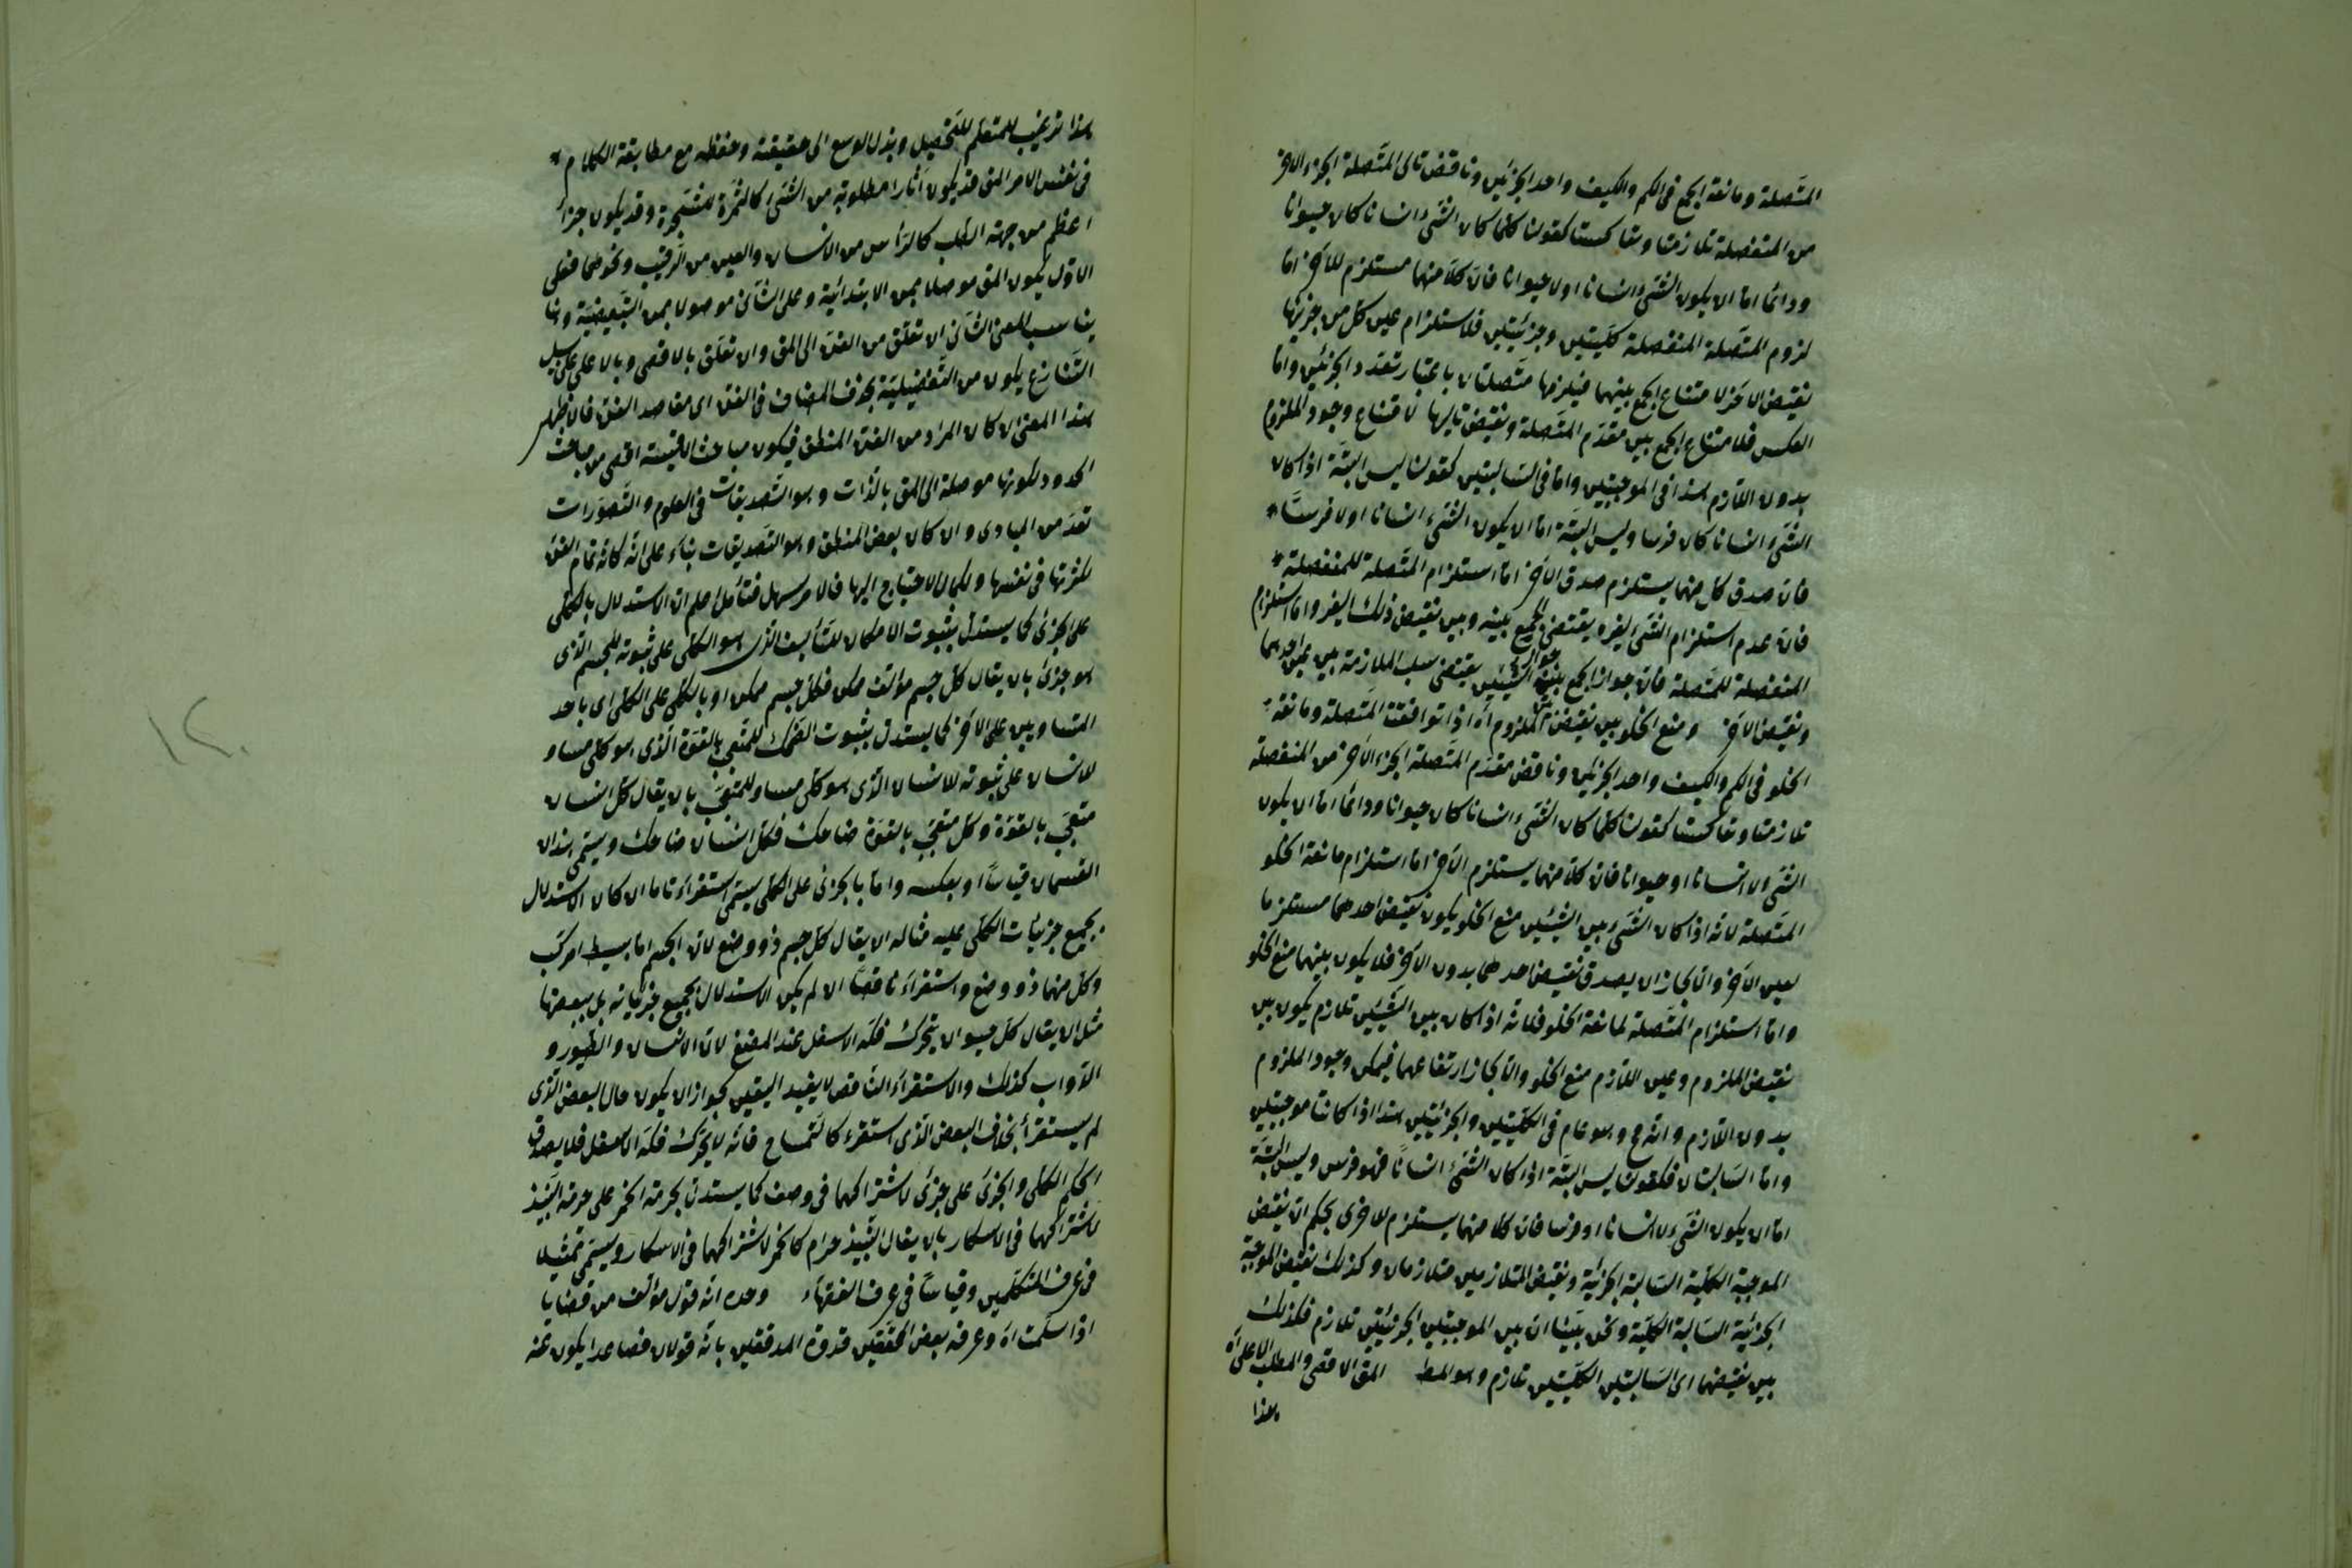 المتّصلة ومانعة الجمع فى الكم والكيف واحد الجزئين وناقض تالى المتّصلة الجزء الآخر
من المنفصلة تلازمتا وتعاكستا كقولنا كلما كان الشئ انسانا كان حيوانا
ودائما امّا ان يكون الشئ انسانا او لا حيوانا فانّ كلّا منهما مستلزم للآخر امّا
لزوم المتّصلة المنفصلة كليتين وجزئيتين فلاستلزام عين كل من جزئيها
نقيض الآخر لامتناع الجمع بينهما فيلزمها متّصلتان باعتبار تعدد الجزئين وامّا
العكس فلامتناع الجمع بين مقدّم المتّصلة ونقيض تاليها لامتناع وجود الملزوم
بدون اللّازم هذا فى الموجبتين وامّا فى السّالبتين كقولنا ليس البتّة اذا كان
الشئ انسانا كان فرسا وليس البتّة امّا ان يكون الشئ انسانا او لا فرسًا
فانّ صدق كل منهما يستلزم صدق الآخر امّا استلزام المتّصلة للمنفصلة
فانّ عدم استلزام الشئ لغيره يقتضى الجمع بينه وبين نقيض ذلك الغير وامّا استلزام
المنفصلة للمتّصلة فانّ جواز الجمع بين الشيئين يقتضى سلب الملازمة بين عين احدهما
ونقيض الآخر ومنع الخلو بين نقيض الملزوم اه اذا توافقت المتّصلة ومانعة
الخلو فى الكم والكيف واحد الجزئين وناقض مقدّم المتّصلة الجزء الآخر من المنفصلة
تلازمتا وتعاكستا كقولنا كلما كان الشئ انسانا كان حيوانا ودائما امّا ان يكون
الشئ لا انسانا او حيوانا فانّ كلّا منهما يستلزم الآخر امّا استلزام مانعة الخلو
المتّصلة لانّه اذا كان الشئ بين الشيئين منع الخلو يكون نقيض احدهما مستلزما
لعين الآخر والّا لجاز ان يصدق نقيض احدهما بدون الآخر فلا يكون بينهما منع الخلو
وامّا استلزام المتّصلة لمانعة الخلو فلانّه اذا كان بين الشيئين تلازم يكون بين
نقيض الملزوم وعين اللّازم منع الخلو والّا لجاز ارتفاعهما فيمكن وجود الملزوم
بدون اللّازم وانّه مح وهو عام فى الكليتين والجزئيتين هذا اذا كانتا موجبتين
وامّا السّالبتان فكقولنا ليس البتّة اذا كان الشئ انسانًا فهو فرس وليس البتّة
امّا ان يكون الشئ لا انسانا او فرسا فانّ كلا منهما يستلزم للاخرى بحكم انّ نقيض
الموجبة الكليّة السّالبة الجزئيّة ونقيض المتلازمين متلازمان وكذلك نقيض الموجبة
الجزئيّة السّالبة الكليّة ونحن بيّنّا ان بين الموجبتين الجزئيتين تلازم فكذلك
بين نقيضهما اى السّالبتين الكليّتين تلازم وهو المط المق الاقصى والمطلب الاعلى اه
هذا
هذا ترغيب للمتعلّم للتّحصيل وبذل الوسع الى حقيقته وحفظه مع مطابقة الكلام
فى نفس الامر المق قد يكون آثارا مطلوبة من الشئ كالثمرة للشّجرة وقد يكون جزأ
اعظم من جهة الطلب كالرّأس من الانسان والعين من الرّقيب ونحوهما فعلى
الاوّل يكون المق موصلا بمن الابتدائية وعلى الثّانى موصولا بمن التّبعيضيّة وما
يناسب المعنى الثّانى ان تعلّق من الفنّ الى المق وان تعلّق بالاقصى وبالاعلى على سبيل
التّنازع يكون من التّفضيليّة بحذف المضاف فى الفنّ اى مقاصد الفنّ فان ظهر
هذا المعنى ان كان المراد من الفنّ المنطق فيكون مباحث الاقيسة اقصى من مباحث
الحدود لكونها موصلة الى المق بالذّات وهو التّصديقات فى العلوم والتّصوّرات
تعدّ من المبادى وان كان بعض المنطق وهو التّصديقات بناء على انّه كانّه تمام الفنّ
لكثرتها فى نفسها ولكمال الاحتياج اليها فالامر سهل فتأمّل اعلم انّ الاستدلال بالكلّى
على الجزئى كما يستدلّ بثبوت الامكان للتأليف الّذى هو الكلّى على ثبوته للجسم الّذى
هو جزئى بان يقال كلّ جسم مؤلّف ممكن فكلّ جسم ممكن او بالكلّى على الكلّى اى باحد
المتساويين على الآخر كما يستدلّ بثبوت الضّحك للمتعجّب بالقوّة الّذى هو كلّى مساو
للانسان على ثبوته للانسان الّذى هو كلّى مساو للمتعجّب بان يقال كلّ انسان
متعجّب بالقوّة وكلّ متعجّب بالقوّة ضاحك فكلّ انسان ضاحك ويسمّى هذان
القسمان قياسًا او بعكسه وامّا بالجزئى على الكلّى يسمّى استقراء تاما ان كان الاستدلال
بجميع جزئيات الكلّى عليه مثاله ان يقال كلّ جسم ذو وضع لانّ الجسم امّا بسيط او مركّب
وكلّ منهما ذو وضع واستقراء ناقصًا ان لم يكن الاستدلال بجميع جزئياته بل ببعضها
مثل ان يقال كلّ حيوان يتحرك فكّه الاسفل عند المضغ لانّ الانسان والطّيور و
الدّواب كذلك والاستقراء النّاقص لا يفيد اليقين لجواز ان يكون حال البعض الّذى
لم يستقرأ بخلاف البعض الّذى استقرء كالتّمساح فانّه لا يتحرّك فكّه الاسفل فلا يصدق
الحكم الكلّى والجزئى على جزئى لاشتراكهما فى وصف كما يستدلّ بحرمة الخمر على حرمة النّبيذ
لاشتراكهما فى الاسكار بان يقال النّبيذ حرام كالخمر لاشتراكهما فى الاسكار ويسمّى تمثيلا
فى عرف المتكلّمين وقياسًا فى عرف الفقهاء وحده انّه قول مؤلّف من قضايا
اذا سلّمت اه وعرفه بعض المحققين قدوة المدققين بانّه قولان فصاعدا يكون عنه